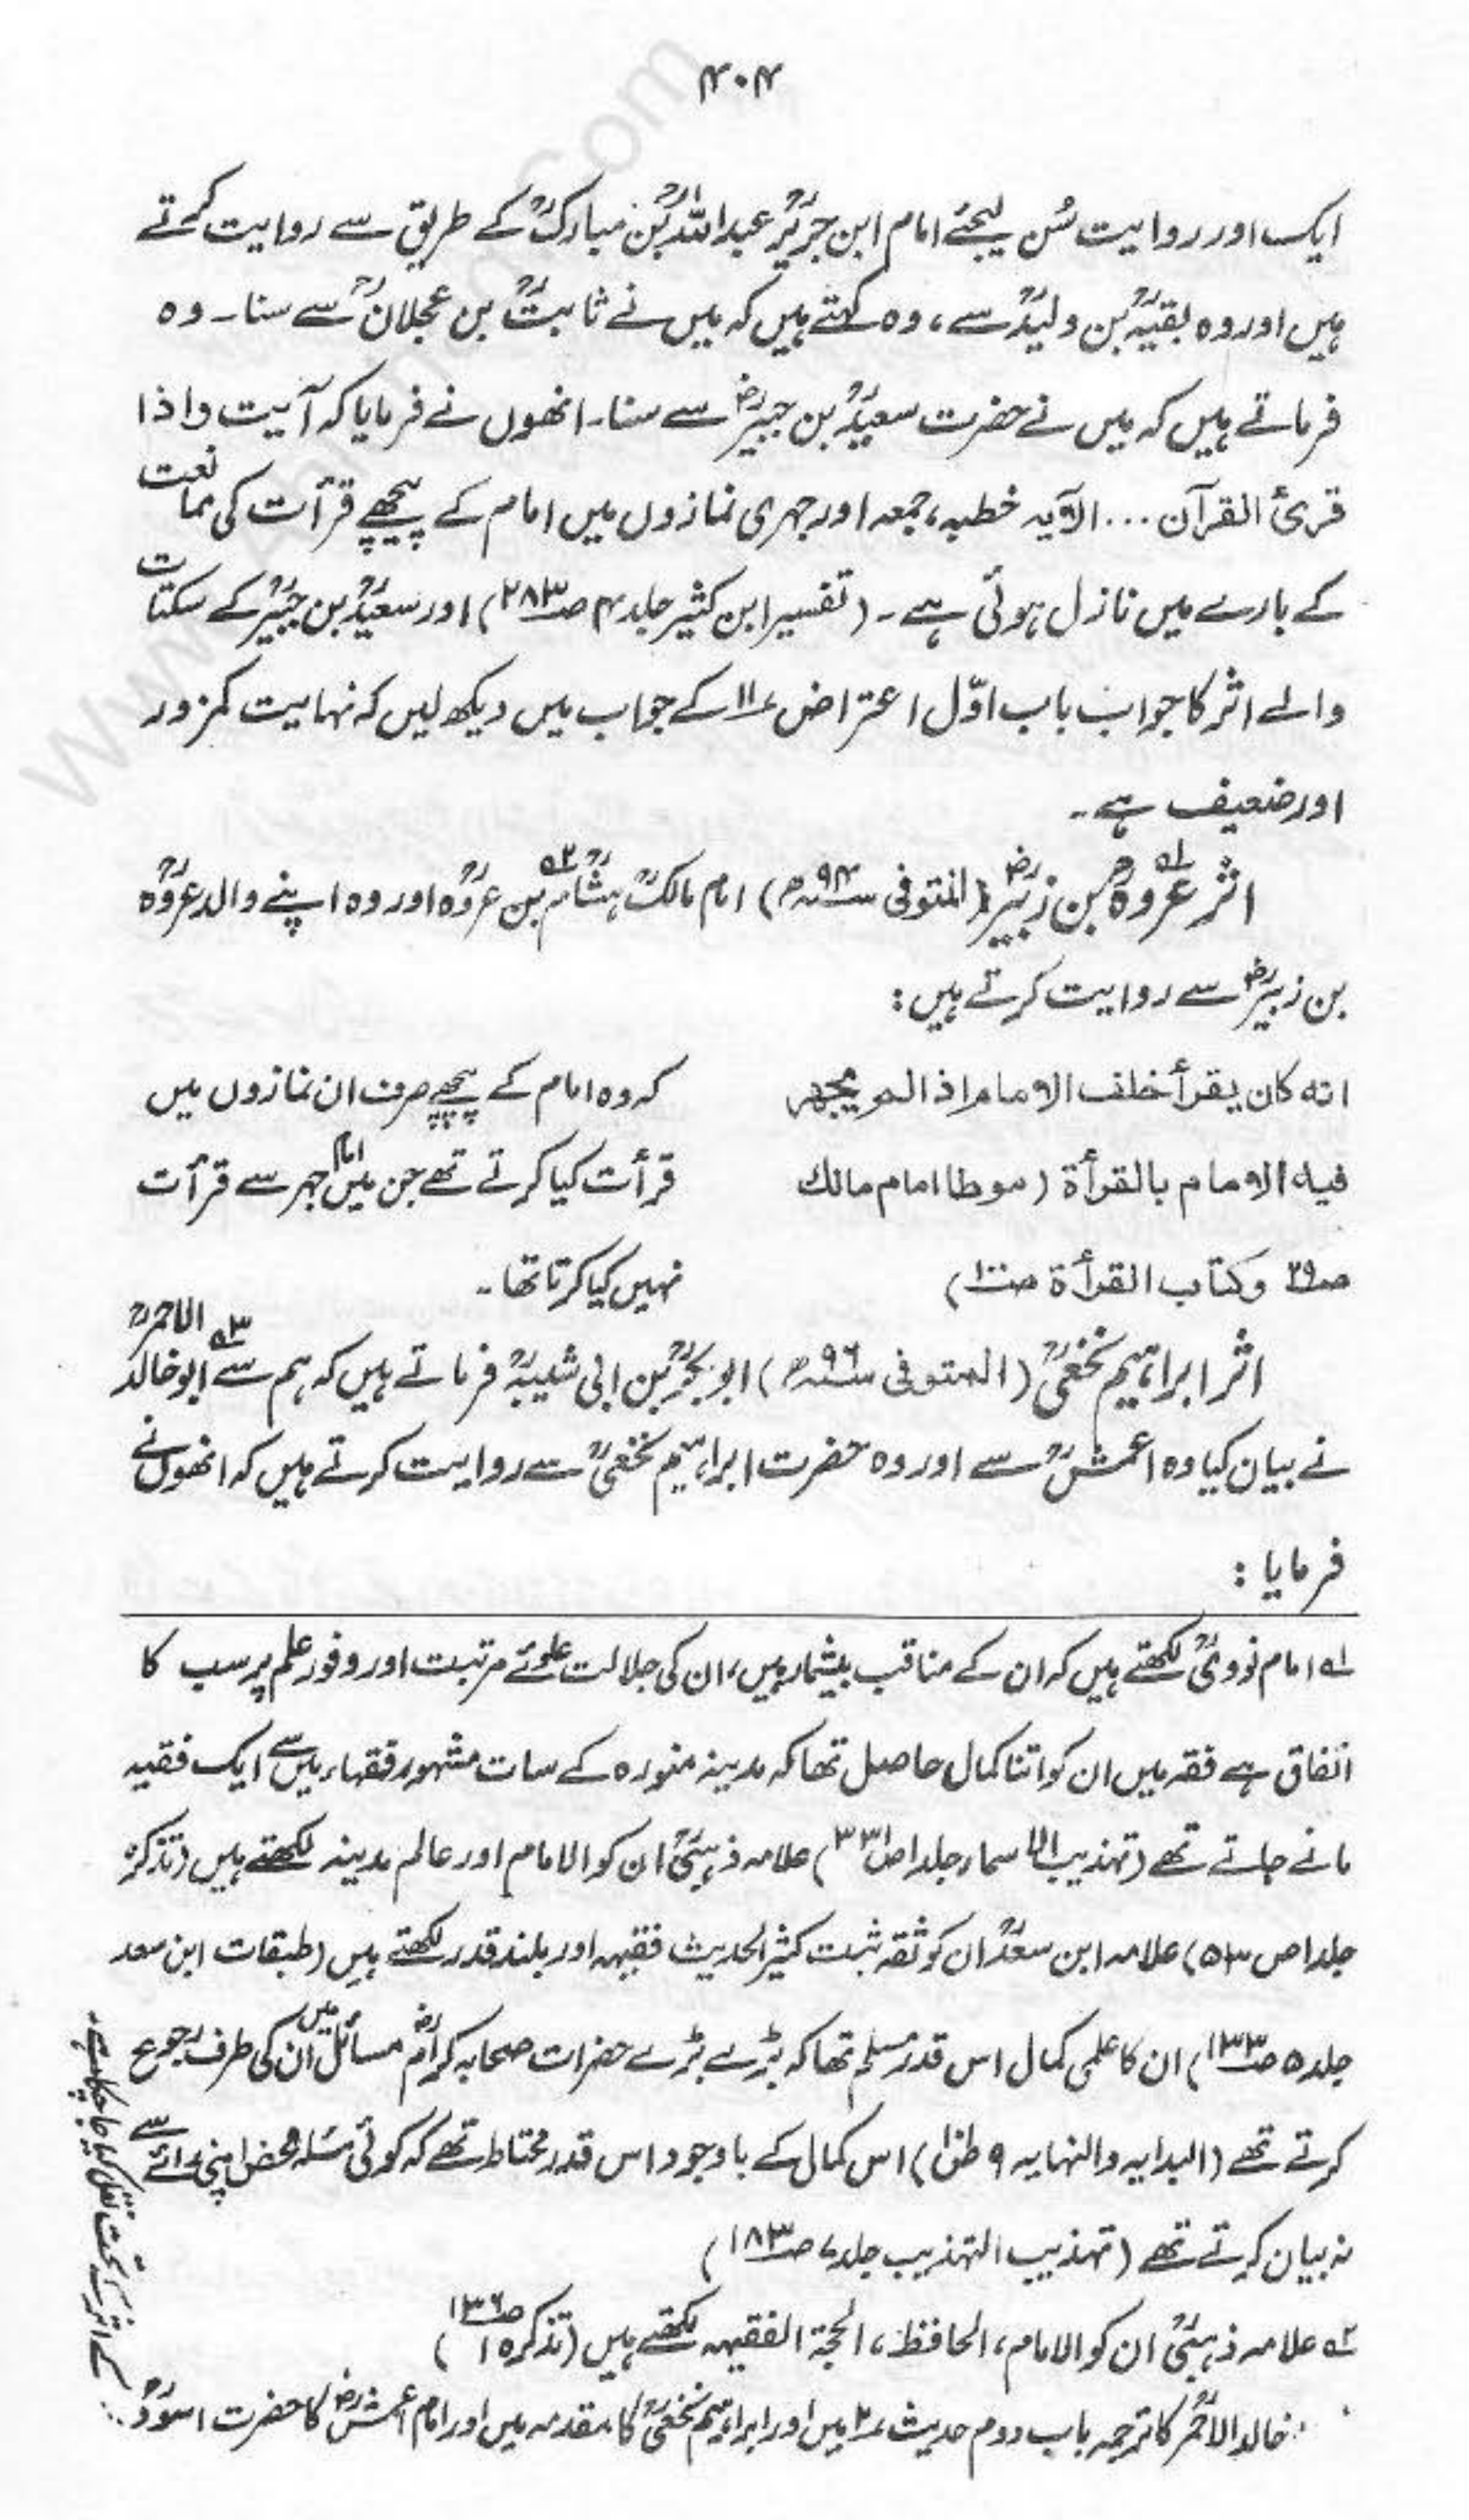 ۴۰۴
ایک اور روایت سُن لیجئے امام ابن جریرؒ عبداللہؒ بن مبارکؒ کے طریق سے روایت کرتے
ہیں اور وہ بقیہؒ بن ولیدؒ سے، وہ کہتے ہیں کہ میں نے ثابتؒ بن عجلانؒ سے سنا۔ وہ
فرماتے ہیں کہ میں نے حضرت سعیدؒ بن جبیرؓ سے سنا۔ انھوں نے فرمایا کہ آیت واذا
قرئ القرآن ... الآیہ خطبہ، جمعہ اور جہری نمازوں میں امام کے پیچھے قرأت کی ممانعت
کے بارے میں نازل ہوئی ہے۔ (تفسیر ابن کثیر جلد ۴ صـ۲۸۳) اور سعیدؒ بن جبیرؒ کے سکتات
والے اثر کا جواب باب اوّل اعتراض ۱۱ کے جواب میں دیکھ لیں کہ نہایت کمزور
اور ضعیف ہے۔
اثر عروہؒ ۱؎ بن زبیرؓ (المتوفی ۹۴ھ) امام مالکؒ ہشامؒ ۲؎ بن عروہؒ اور وہ اپنے والد عروہؒ
بن زبیرؓ سے روایت کرتے ہیں:
انه کان یقرأ خلف الامام اذا لم یجهر
فیه الامام بالقرأة (موطا امام مالك
صـ۲۹ وکتاب القرأة صـ۱۰۰)
کہ وہ امام کے پیچھے صرف ان نمازوں میں
قرأت کیا کرتے تھے جن میں امام جہر سے قرأت
نہیں کیا کرتا تھا۔
اثر ابراہیم نخعیؒ (المتوفی ۹۶ھ) ابوبکرؒ بن ابی شیبہؒ فرماتے ہیں کہ ہم سے ۳؎ ابوخالد الاحمرؒ
نے بیان کیا وہ اعمشؒ سے اور وہ حضرت ابراہیم نخعیؒ سے روایت کرتے ہیں کہ انھوں نے
فرمایا:
۱؎ امام نوویؒ لکھتے ہیں کہ ان کے مناقب بیشمار ہیں، ان کی جلالت علوئے مرتبت اور وفور علم پر سب کا
اتفاق ہے فقہ میں ان کو اتنا کمال حاصل تھا کہ مدینہ منورہ کے سات مشہور فقہاء میں سے ایک فقیہ
مانے جاتے تھے (تہذیب الاسماء جلد ۱ ص۳۳۱) علامہ ذہبیؒ ان کو الامام اور عالم مدینہ لکھتے ہیں (تذکرہ
جلد ۱ ص ۵۳) علامہ ابن سعدؒ ان کو ثقہ ثبت کثیر الحدیث فقیہہ اور بلند قدر لکھتے ہیں (طبقات ابن سعد
جلد ۵ صـ۱۳۳) ان کا علمی کمال اس قدر مسلم تھا کہ بڑے بڑے حضرات صحابہ کرامؓ مسائل میں ان کی طرف رجوع
کرتے تھے (البدایہ والنہایہ ۹ ص۱۰۱) اس کمال کے باوجود اس قدر محتاط تھے کہ کوئی مسئلہ محض اپنی رائے سے
نہ بیان کرتے تھے (تہذیب التہذیب جلد ۷ صـ۱۸۳)
۲؎ علامہ ذہبیؒ ان کو الامام، الحافظ، الحجۃ الفقیہہ لکھتے ہیں (تذکرہ ۱ صـ۱۳۶)
خالد الاحمرؒ کا ترجمہ باب دوم حدیث ۲ میں اور ابراہیم نخعیؒ کا مقدمہ میں اور امام اعمشؒ کا حضرت اسودؒ
کے اثر کے تحت نقل کیا جا چکا ہے۔